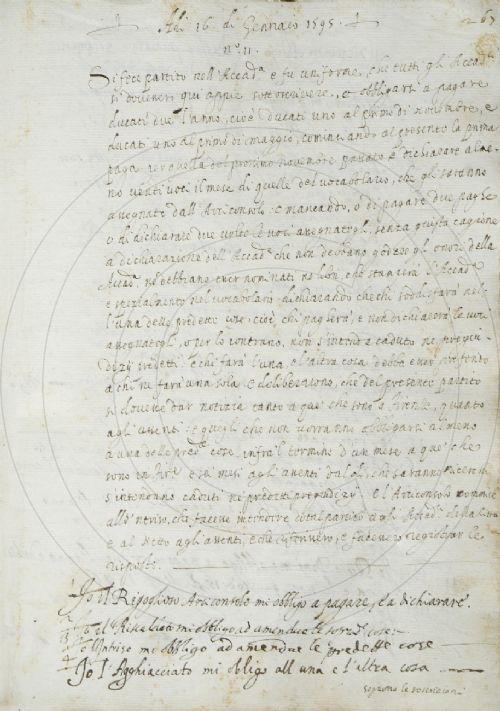 Adi 16 di Gennaio 1595.
263
n.° 11.
Si fece partito nell'Accad.ª e fu uniforme, che tutti gli Accad.ci
si dovesser qui appiè sottoscrivere, e obbligarsi a pagare
ducati due l'anno, cioè ducati uno al primo di Novembre, e
ducati uno al primo di Maggio, cominciando al presente la prima
paga per quella del prossimo novembre passato e dichiarare alme
no venti voci il mese di quelle del vocabolario, che gli saranno
assegnate dall'Arciconsolo: e mancando, o di pagare due paghe
o di dichiarare due volte le voci assegnategli, senza giusta cagione
a dichiarazione dell'Accad.ª che non debbano godere gli onori della
Accad.ª ne debbano esser nominati ne libri, che stamperà l'Accad.ª
e spezialmente nel vocabolario, dichiarando che chi soddisfarà nel
l'una delle predette cose, cioè, chi pagherà, e non dichiarerà, le voci
assegnategli, o per lo contrario, non s'intenda caduto ne pregiu
dizzi predetti: e chi farà l'una, e l'altra cosa debba esser preferito
a chi ne farà una sola. E deliberarono, che del presente partito
si dovesse dar notizia tanto a que' che sono a Firenze, quanto
agli assenti: e quegli che non vorranno obbligarsi almeno
a una delle pred.e cose, infra 'l termine d'un mese a que' che
sono in Fir.e e sei mesi agli assenti dal dì, che saranno
s'intendano caduti ne predetti pregiudizi. E l'Arciconsolo commise
allo 'ntriso, che facesse
e al agli assenti, e che scrivessero, e facessero registrar le
risposte.
Io 'l Rigoglioso Arciconsolo mi obbligo a pagare, e a dichiarare.
Io il mi obbligo ad amendue le sopradd.e cose.
Io 'ntriso mi obbligo ad amendue le predette cose
Io l'Agghiacciato mi obligo all una e l'altra cosa
seguono le